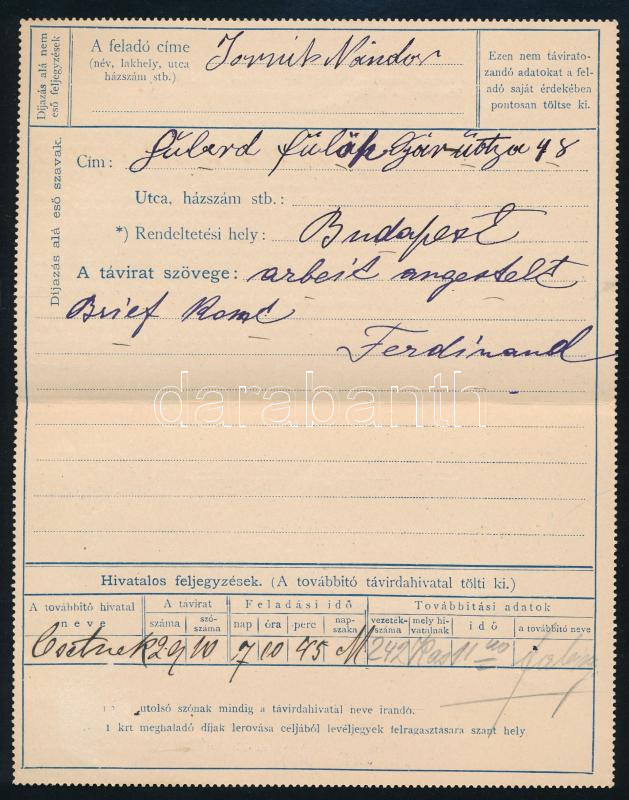 Díjazás alá nem eső feljegyzések
A feladó címe Nándor
(név, lakhely, utca
házszám stb.)
Ezen nem távirato-
zandó adatokat a fel-
adó saját érdekében
pontosan töltse ki.
Díjazás alá eső szavak.
Cím: Fülöp Gyár útza 48
Utca, házszám stb.:
*) Rendeltetési hely: Budapest
A távirat szövege: arbeit angestelt
Brief Komt
Ferdinand
darabanth
Hivatalos feljegyzések. (A továbbító távirdahivatal tölti ki.)
A továbbító hivatal neve
A távirat
száma
szó-száma
Feladási idő
nap
óra
perc
nap-szaka
Továbbítási adatok
vezeték-száma
mely hi-vatalnak
idő
a továbbító neve
Csetnek 29 10 7 10 45 M 242 Kas 11 40
utolsó szónak mindig a távirdahivatal neve irandó.
1 krt meghaladó díjak lerovása céljából levéljegyek felragasztására szánt hely.